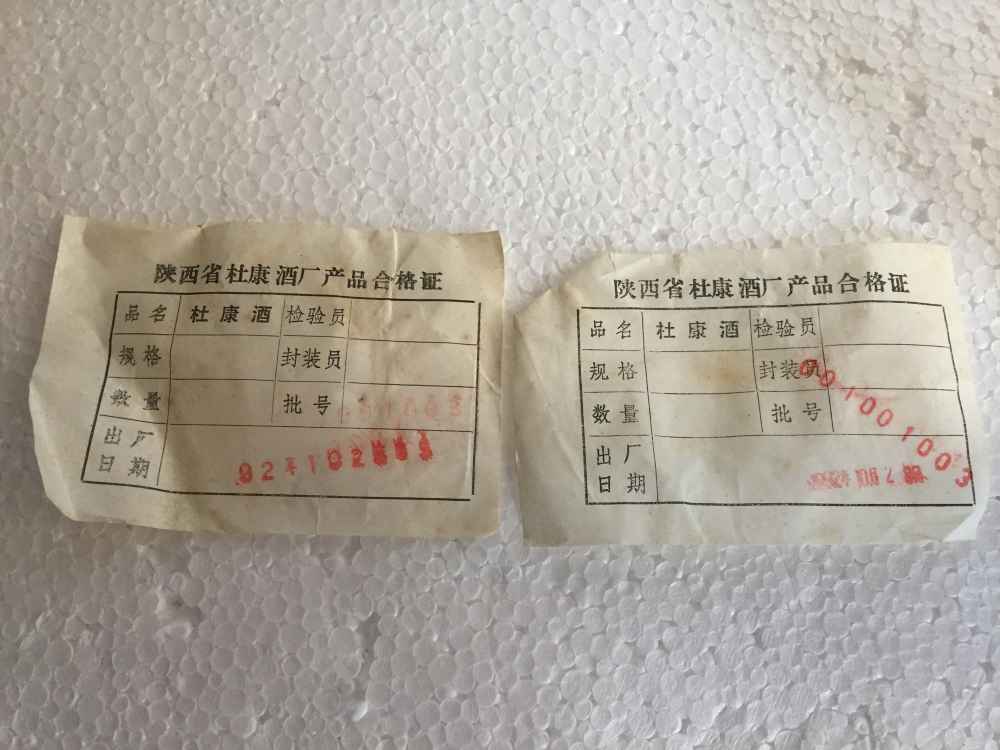 陕西省杜康酒厂产品合格证
品名 杜康酒 检验员
规格 封装员
数量 批号 001003
出厂
日期
陕西省杜康酒厂产品合格证
品名 杜康酒 检验员
规格 封装员
数量 批号
出厂
日期
001001003